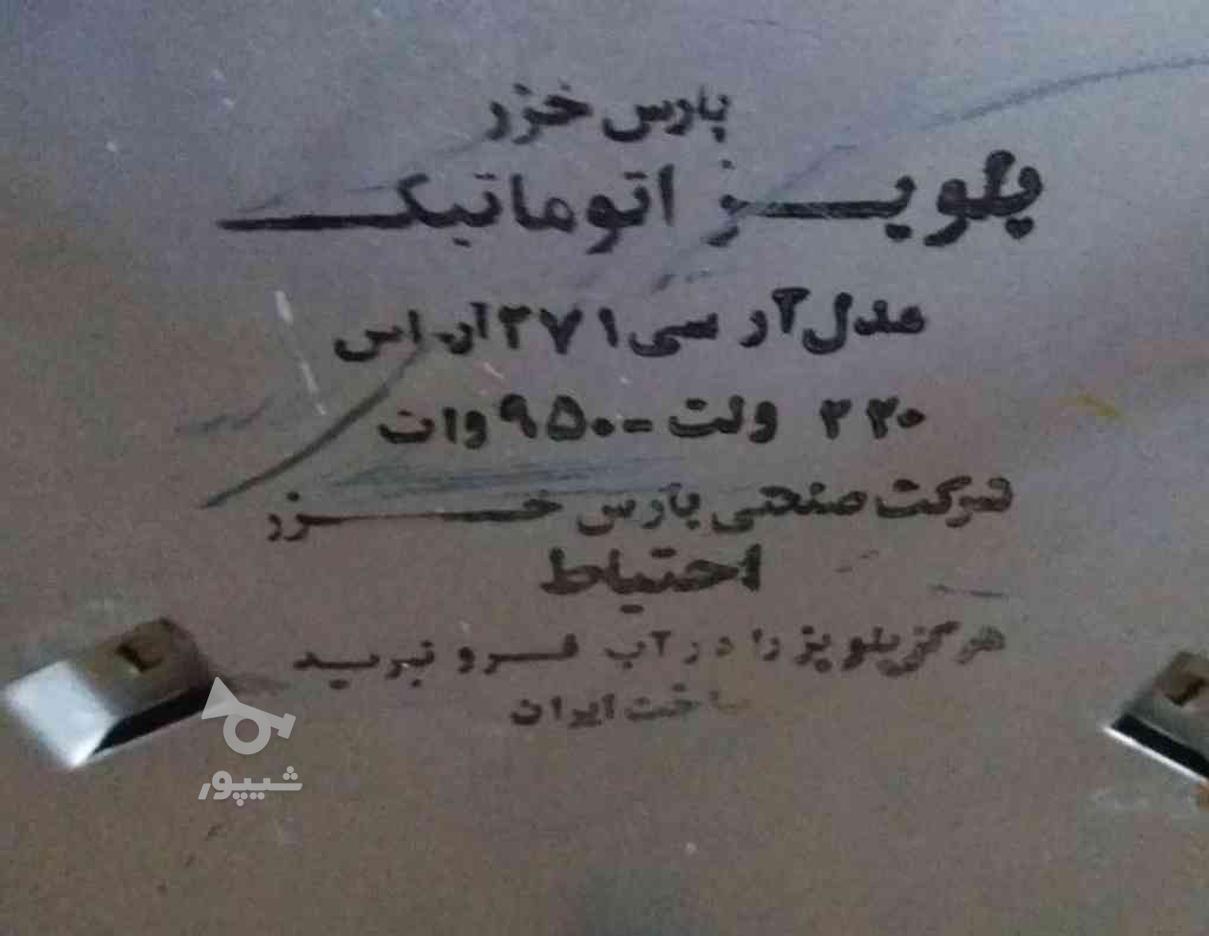 پارس خزر
پلوپز اتوماتیک
مدل آر سی ۲۷۱ آر اس
۲۲۰ ولت - ۹۵۰ وات
شرکت صنعتی پارس خزر
احتیاط
هرگز پلوپز را در آب فرو نبرید
ساخت ایران
شیپور